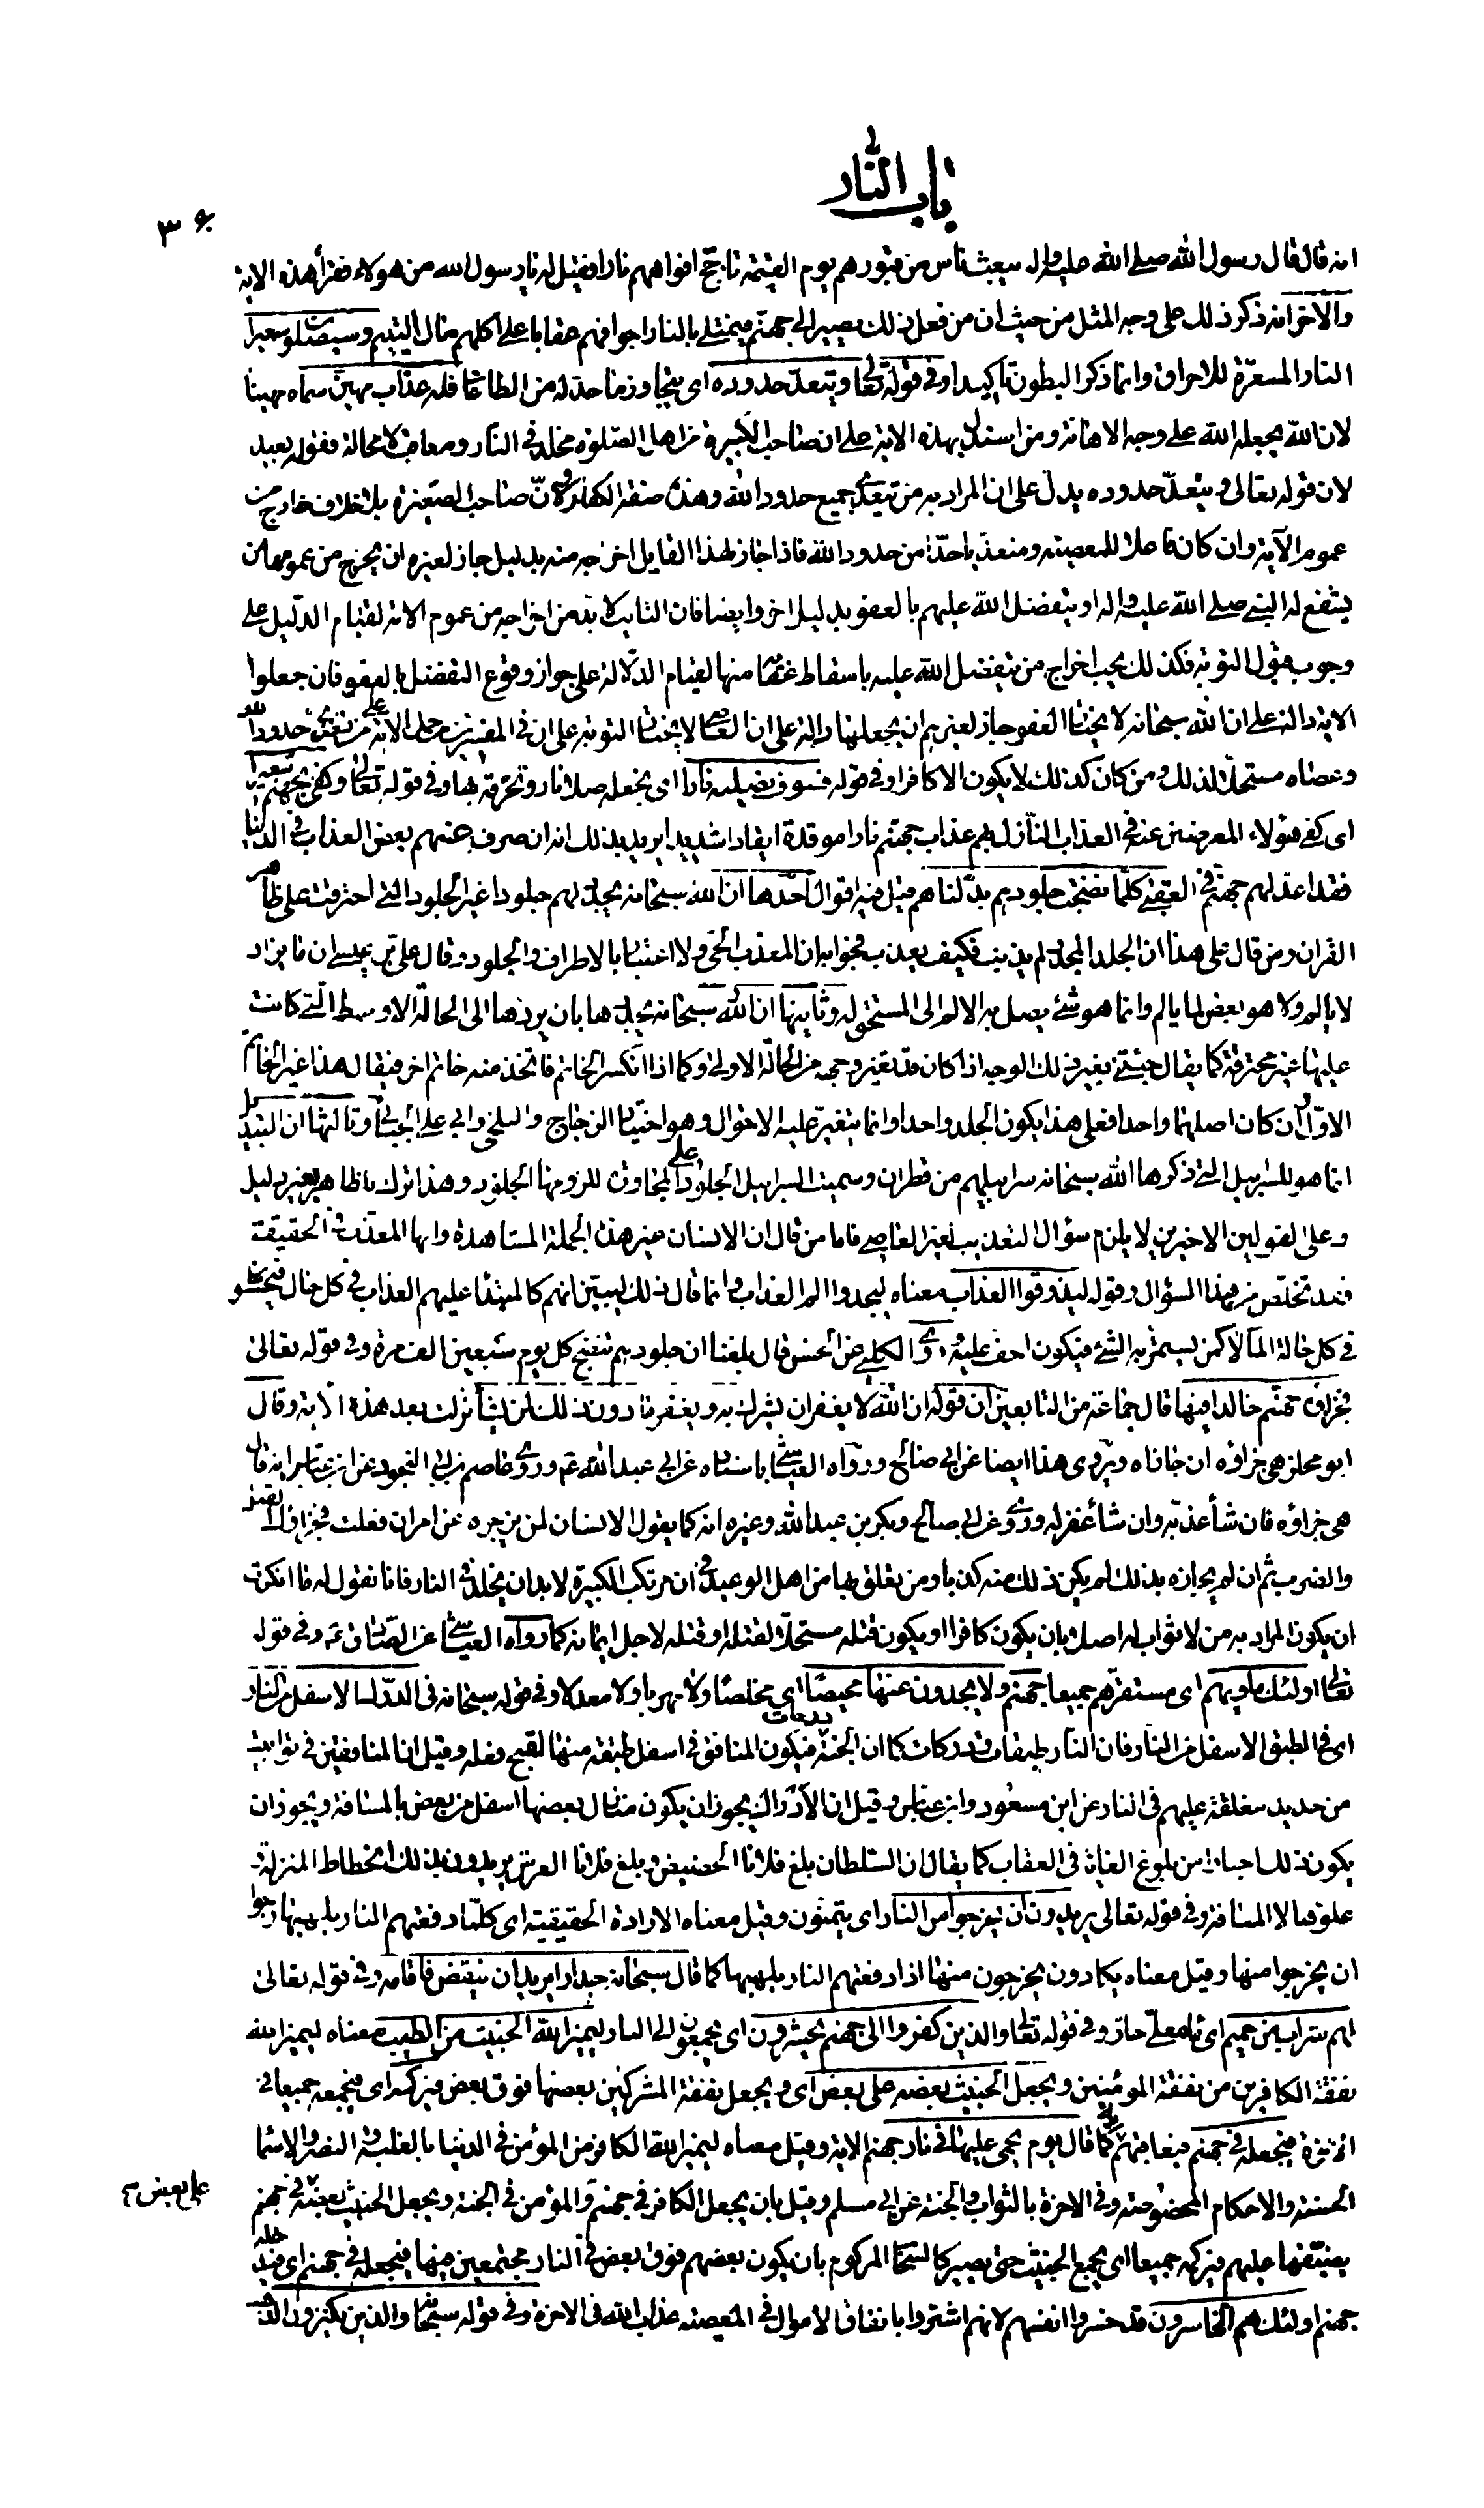 باب النّار
٣۶
انه قال قال رسول الله صلى الله عليه واله يبعث ناس من قبورهم يوم القيمة تاجّج افواههم نارا فقيل له يا رسول الله من هولاء فقرأ هذه الاية
والآخر انه ذكر ذلك على وجه المثل من حيث ان من فعل ذلك يصير الى جهنّم فيمتلى بالنار اجوافهم عقابا على اكلهم مال اليتيم وسيصلون سعيرا
النار المسعّرة للاحراق وانما ذكر البطون تاكيدا وفي قوله تعالى ويتعدّ حدوده اى يتجاوز ما حدّ له من الطاعات فله عذاب مهين سماه مهينا
لان الله يجعله الله على وجه الاهانة ومن استدل بهذه الاية على ان صاحب الكبيرة من اهل الصلوة مخلد في النار ومعاقب لا محالة فقوله بعيد
لان قوله تعالى ويتعدّ حدوده يدل على ان المراد به من يتعدى جميع حدود الله وهذه صفة الكفار ولانّ صاحب الصّغيرة بلا خلاف خارج من
عموم الآية وان كان فاعلا للمعصية ومتعدّيا حدّا من حدود الله فاذا جاز لهذا القايل اخراجه منه بدليل جاز لغيره ان يخرج من عمومها من
يشفع له النبي صلى الله عليه واله او يتفضل الله عليهم بالعفو بدليل اخر وايضا فان التايب لا بد من اخراجه من عموم الاية لقيام الدّليل على
وجوب قبول التوبة فكذلك يجب اخراج من يتفضل الله عليه باسقاط عقابه منها لقيام الدّلالة على جواز وقوع التفضل بالعفو فان جعلوا
الاية دالة على ان الله سبحانه لا يختار العفو جاز لغيرهم ان يجعلها دالة على ان العاصي لا يختار التوبة على ان في المفسرين من حمل الاية على من تعدى حدود الله
وعصاه مستحلا لذلك ومن كان كذلك لا يكون الا كافرا وفي قوله فسوف نصليه نارا اى نجعله صلا نار ونحرقه بها وفي قوله تعالى وكفى بجهنم سعيرا
اى كفى هؤلاء المعرضين عنه في العذاب النّازل بهم عذاب جهنم نارا موقدة ايقادا شديدا يريد بذلك انه ان صرف عنهم بعض العذاب في الدنيا
فقد اعدّ لهم جهنم في العقبى كلّما نضجت جلودهم بدّلناهم قيل فيه اقوال احدها ان الله سبحانه يجدّد لهم جلودا غير الجلود التي احترقت على ظاهر
القران ومن قال على هذا ان الجلد المجدد لم يذنب فكيف يعذب فجوابه ان المعذب الحيّ ولا اعتبار بالاطراف والجلود وقال علي بن عيسى ان ما يزاد
لا يالم ولا هو بعض لما يالم وانما هو شئ يصل به الالم الى المستحق له وثانيها ان الله سبحانه يجدّدها بان يردّها الى الحالة الاولى التي كانت
عليها غير محترقة كما يقال جئتني بغير ذلك الوجه اذا كان قد تغير وجهه من الحالة الاولى وكما اذا انكسر الخاتم فاتخذ منه خاتم اخر فيقال هذا غير الخاتم
الاوّل وان كان اصلهما واحدا فعلى هذا يكون الجلد واحدا وانما يتغير عليه الاحوال وهو اختيار الزجاج والبلخي وابي علي الجبائي وثالثها ان التبديل
انما هو للسرابيل التي ذكرها الله سبحانه سرابيلهم من قطران وسميت السرابيل الجلود على المجاورة للزومها الجلود وهذا ترك للظاهر بغير دليل
وعلى القولين الاخيرين لا يلزم سؤال التعذيب لغير العاصي فاما من قال ان الانسان غير هذه الجملة المشاهدة وانها المعذّب في الحقيقة
فقد تخلّص من هذا السؤال وقوله ليذوقوا العذاب معناه ليجدوا الم العذاب وانما قال ذلك ليبيّن انهم كالمبتدأ عليهم العذاب في كل حال فيحسّون
في كل حالة الما لا كمن يستمرّ به الشئ فيكون اخفّ عليه وروى الكلبي عن الحسن قال بلغنا ان جلودهم تنضج كل يوم سبعين الف مرة وفي قوله تعالى
فجزاؤه جهنّم خالدا فيها قال جماعة من التابعين ان قوله ان الله لا يغفر ان يشرك به ويغفر ما دون ذلك لمن يشاء نزلت بعد هذه الاية وقال
ابو مجلز هي جزاؤه ان جازاه ويروى هذا ايضا عن ابي صالح ورواه العياشي باسناده عن ابي عبد الله ع وروى عاصم بن ابي النجود عن ابن عباس انه قال
هي جزاؤه فان شاء عذّبه وان شاء غفر له وروى عن ابي صالح وبكر بن عبد الله وغيره انه كما يقول الانسان لمن يزجره عن امر ان فعلت فجزاؤك القتل
والضرب ثم ان لم يجازه بذلك لم يكن ذلك منه كذبا ومن تعلق بها من اهل الوعيد في ان مرتكب الكبيرة لا بد ان يخلد في النار فانا نقول له ما انكرت
ان يكون المراد به من لا ثواب له اصلا بان يكون كافرا او يكون قتله مستحلا لقتله او قتله لاجل ايمانه كما رواه العياشي عن الصادق ع وفي قوله
تعالى اولئك ماويهم اى مستقرّهم جميعا جهنّم ولا يجدون عنها محيصا اى مخلصا ولا مهربا ولا معدلا وفي قوله سبحانه في الدّرك الاسفل من النار
اى في الطبق الاسفل من النار فان النار طبقات ودركات كما ان الجنة درجات فيكون المنافق في اسفل طبقة منها لقبيح فعله وقيل ان المنافقين في توابيت
من حديد مغلقة عليهم في النار عن ابن مسعود وابن عباس وقيل ان الادراك يجوز ان يكون منازل بعضها اسفل من بعض بالمسافة ويجوز ان
يكون ذلك اخبارا من بلوغ الغاية في العقاب كما يقال ان السّلطان بلغ فلانا الحضيض وبلغ فلانا العرش يريدون بذلك انحطاط المنزلة و
علوها لا المسافة وفي قوله تعالى يريدون ان يخرجوا من النار اى يتمنون وقيل معناه الارادة الحقيقية اى كلّما دفعتهم النار بلهبها رجوا
ان يخرجوا منها وقيل معناه يكادون يخرجون منها اذا دفعتهم النار بلهبها كما قال سبحانه جدارا يريد ان ينقضّ فاقامه وفي قوله تعالى
لهم شراب من حميم اى ماء مغلى حارّ وفي قوله تعالى والذين كفروا الى جهنّم يحشرون اى يجمعون الى النار ليميز الله الخبيث من الطيب معناه ليميز الله
نفقة الكافرين من نفقة المؤمنين ويجعل الخبيث بعضه على بعض اى ويجعل نفقة المشركين بعضها فوق بعض فيركمه اى فيجمعه جميعا في
الاخرة فيجعله في جهنم فيعاقبهم به كما قال يوم يحمى عليها في نار جهنم الاية وقيل معناه ليميز الله الكافر من المؤمن في الدنيا بالغلبة والنصر والاسماء
الحسنة والاحكام المخصوصة وفي الاخرة بالثواب والجنة عن ابي مسلم وقيل بان يجعل الكافر في جهنم والمؤمن في الجنة ويجعل الخبيث بعضه في جهنم
على بعض
يضيّقها عليهم فيركمه جميعا اى يجمع الخبيث حتى يصير كالسحاب المركوم بان يكون بعضهم فوق بعض في النار مجتمعين فيها فيجعله في جهنم اى فيدخله
جهنم اولئك هم الخاسرون قد خسروا انفسهم لانهم اشتروا بانفاق الاموال في المعصية عذاب الله في الاخرة وفي قوله سبحانه والذين يكنزون الذهب